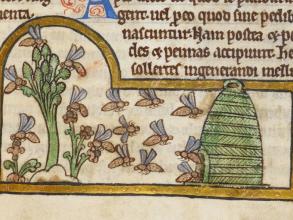 menta.
A
gere. uel p̄co quod sine pedib
nascuntur. Nam postea & pe
des & pennas accipiunt. He
sollertes in generandi mell